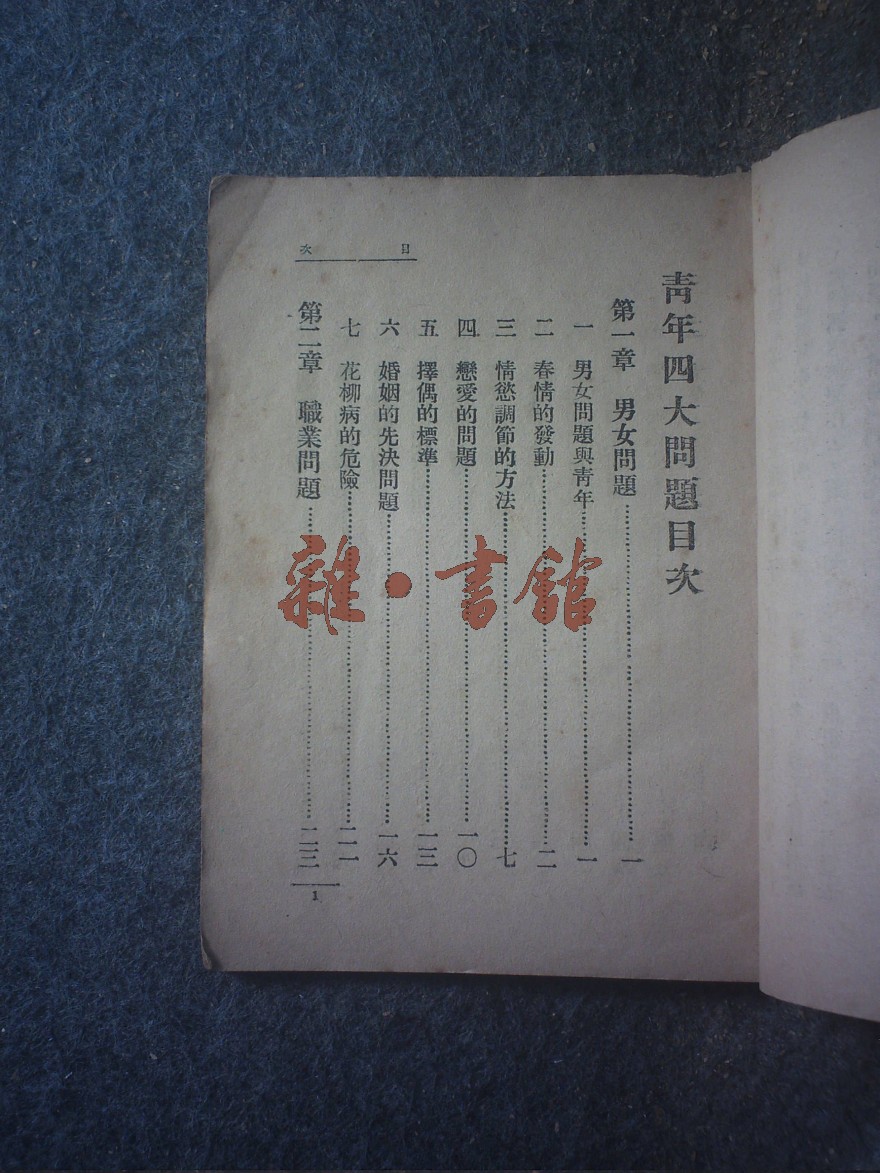 目次
青年四大問題目次
第一章 男女問題……一
一 男女問題與青年……一
二 春情的發動……二
三 情慾調節的方法……七
四 戀愛的問題……一〇
五 擇偶的標準……一三
六 婚姻的先決問題……一六
七 花柳病的危險……二一
第二章 職業問題……二三
1
雜·書館